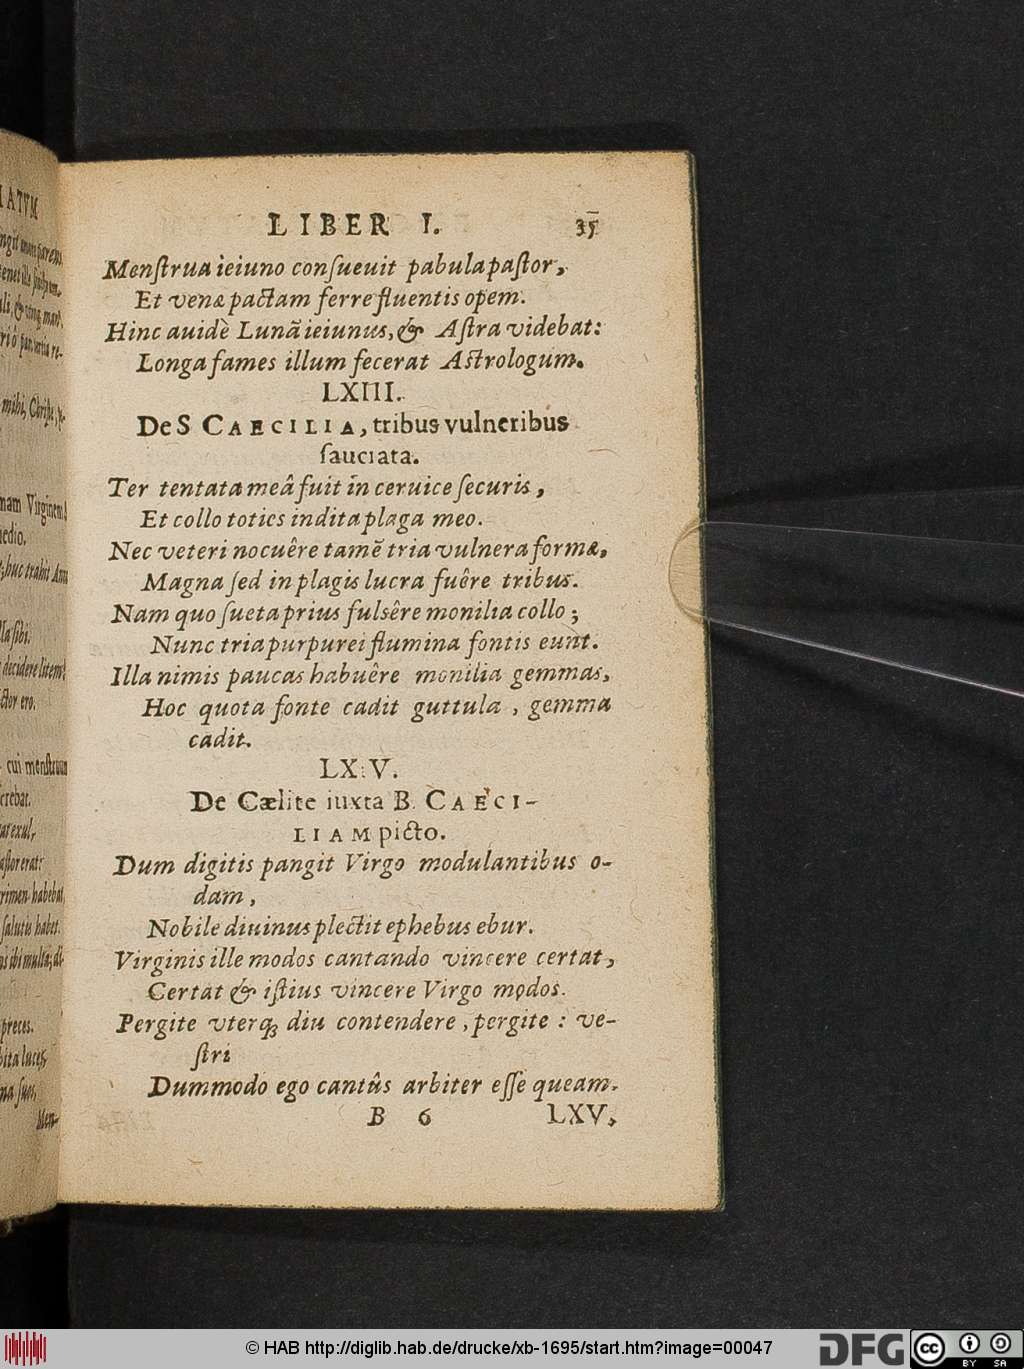 LIBER I. 35
Menſtrua ieiuno conſueuit pabula paſtor,
Et venæ pactam ferre fluentis opem.
Hinc auidè Lunã ieiunus, & Aſtra videbat:
Longa fames illum fecerat Aſtrologum.
LXIII.
De S CAECILIA, tribus vulneribus
ſauciata.
Ter tentata meâ fuit in ceruice ſecuris,
Et collo toties indita plaga meo.
Nec veteri nocuêre tamẽ tria vulnera formæ,
Magna ſed in plagis lucra fuêre tribus.
Nam quo ſueta prius fulsêre monilia collo;
Nunc tria purpurei flumina fontis eunt.
Illa nimis paucas habuêre monilia gemmas,
Hoc quota fonte cadit guttula, gemma
cadit.
LX V.
De Cælite iuxta B. CAECI-
LIAM picto.
Dum digitis pangit Virgo modulantibus o-
dam,
Nobile diuinus plectit ephebus ebur.
Virginis ille modos cantando vincere certat,
Certat & iſtius vincere Virgo modos.
Pergite vterq; diu contendere, pergite: ve-
ſtri
Dummodo ego cantûs arbiter eſſe queam.
B 6 LXV,
© HAB http://diglib.hab.de/drucke/xb-1695/start.htm?image=00047
DFG cc BY SA